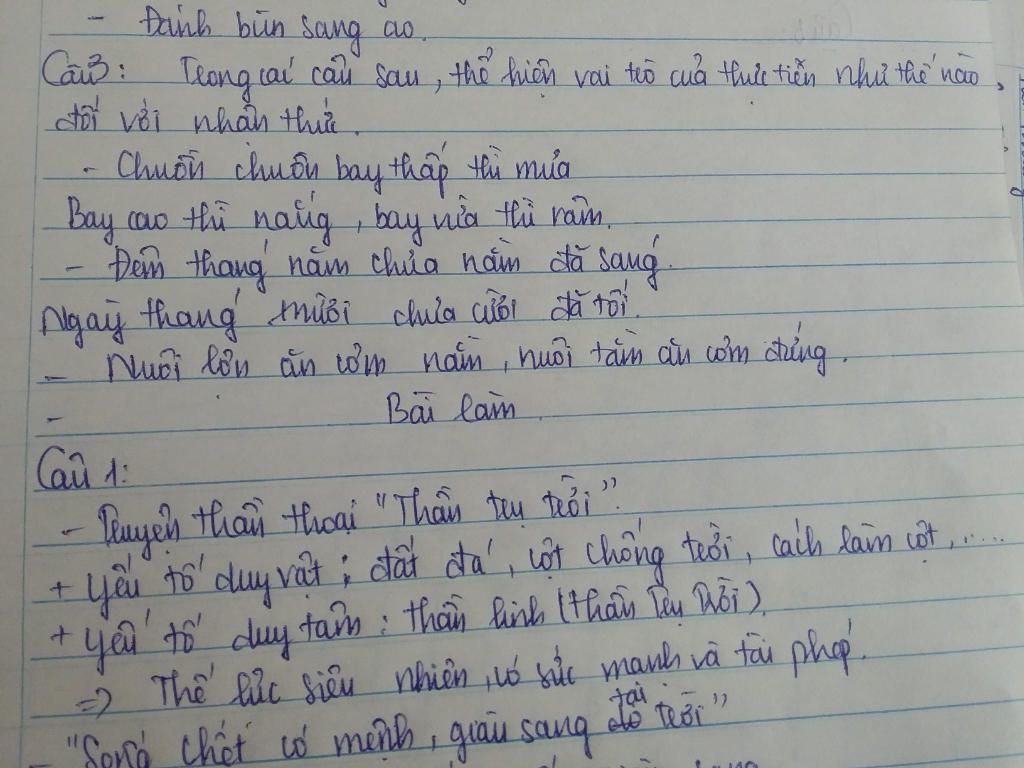 - Đánh bùn sang ao.
Câu 3: Trong các câu sau, thể hiện vai trò của thực tiễn như thế nào,
đối với nhận thức.
- Chuồn chuồn bay thấp thì mưa
Bay cao thì nắng, bay vừa thì râm.
- Đêm tháng năm chưa nằm đã sáng.
Ngày tháng mười chưa cười đã tối.
- Nuôi lợn ăn cơm nằm, nuôi tằm ăn cơm đứng.
- Bài làm
Câu 1:
- Truyện thần thoại "Thần trụ trời".
+ Yếu tố duy vật: đất đá, cột chống trời, cách làm cột,.....
+ Yếu tố duy tâm: thần linh (thần Trụ Trời).
=> Thế lực siêu nhiên, có sức mạnh và tài phép.
- "Sống chết có mệnh, giàu sang tại trời"